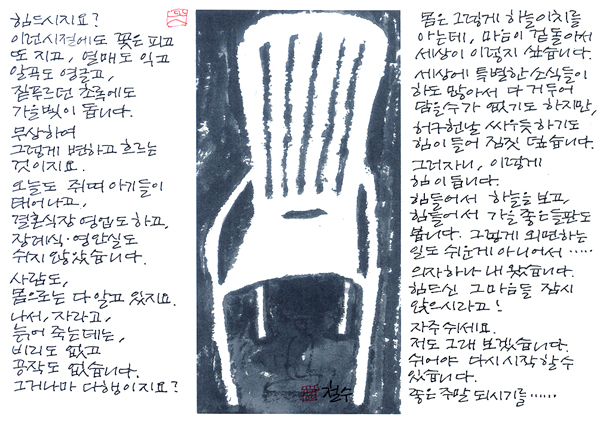 힘드시지요?
이런시절에도 꽃은 피고
또 지고, 열매도 익고
알곡도 영글고,
짙푸르던 초록에도
가을빛이 돕니다.
무상하여
그렇게 변하고 흐르는
것이지요.
오늘도 쥐띠 아기들이
태어나고,
결혼식장 영업도 하고,
장례식·영안실도
쉬지 않았습니다.
사람도,
몸으로는 다 알고 있지요.
나서, 자라고,
늙어 죽는데는,
비리도 없고
공작도 없습니다.
그거나마 다행이지요?
철수
몸은 그렇게 하늘이치를
아는데, 마음이 겉돌아서
세상이 이렇지 싶습니다.
세상에 특별한 소식들이
하도 많아서 다 거두어
담을수가 없기도 하지만,
허구헌날 싸우듯하기도
힘이 들어 짐짓 덮습니다.
그러자니, 이렇게
힘이 듭니다.
힘들어서 하늘을 보고,
힘들어서 가을 좋은들판도
봅니다. 그렇게 외면하는
일도 쉬운게 아니어서……
의자하나 내 왔습니다.
힘드신 그 마음들 잠시
앉으시라고!
자주 쉬세요.
저도 그래 보겠습니다.
쉬어야 다시 시작 할수
있습니다.
좋은 주말 되시기를……